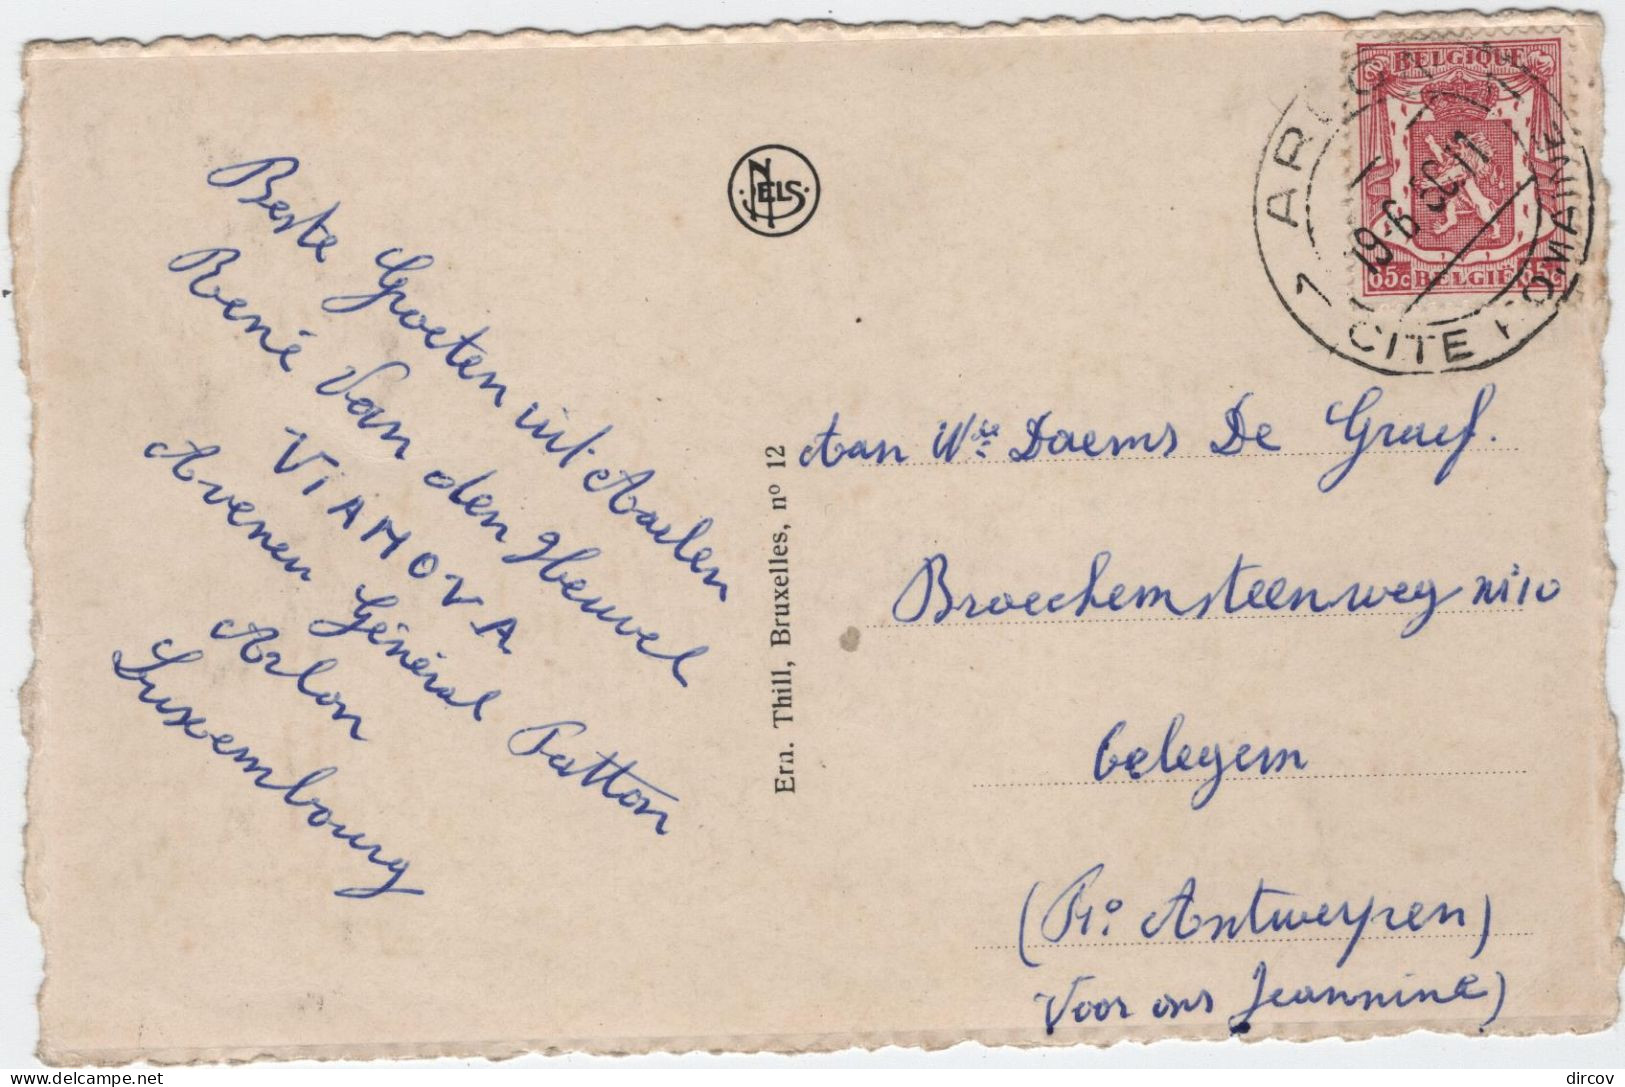 Beste Groeten uit Aarlen
René Van den Heuvel
ViAMOVA
Avenen Général Patton
Arlon
Luxembourg
NELS
Ern. Thill, Bruxelles, nº 12
BELGIQUE
65c BELGIE 65c
1 ARLON 1
19-6
11
CITE ROMAINE
Aan Wde Daems De Graef.
Broechemsteenweg nr 10
Oelegem
(Pr. Antwerpen)
Voor ons Jeannine)
dircov